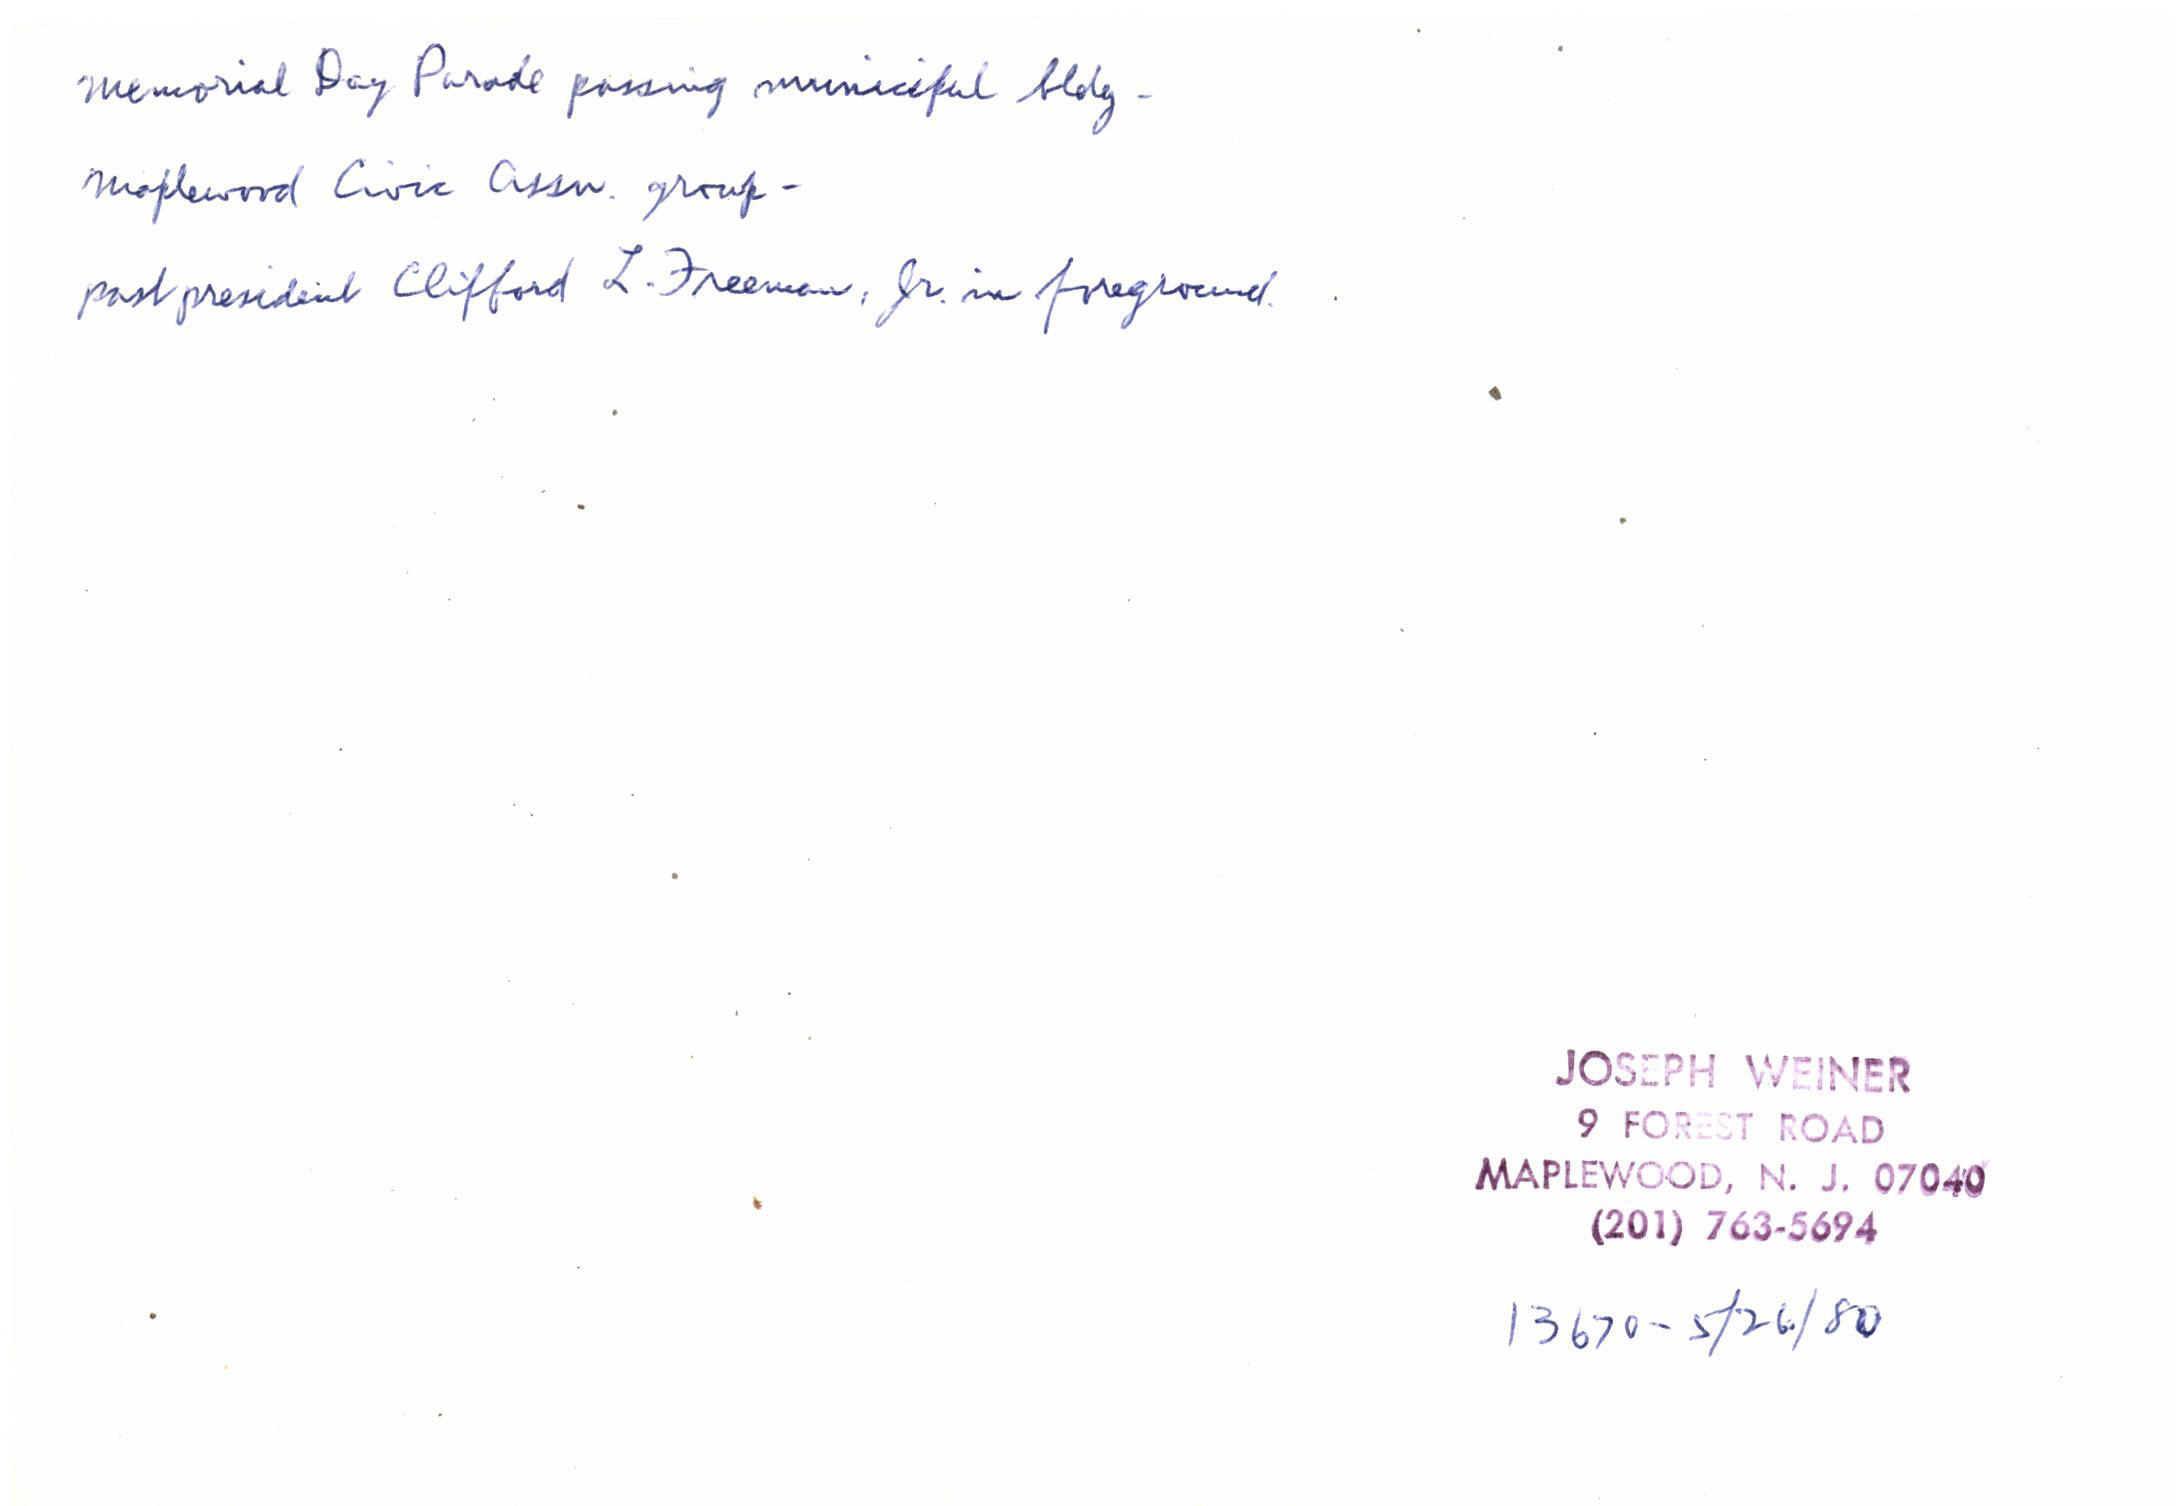 Memorial Day Parade passing municipal bldg -
Maplewood Civic Assn. group -
past president Clifford L. Freeman, Jr. in foreground.
JOSEPH WEINER
9 FOREST ROAD
MAPLEWOOD, N. J. 07040
(201) 763-5694
13670 - 5/26/80